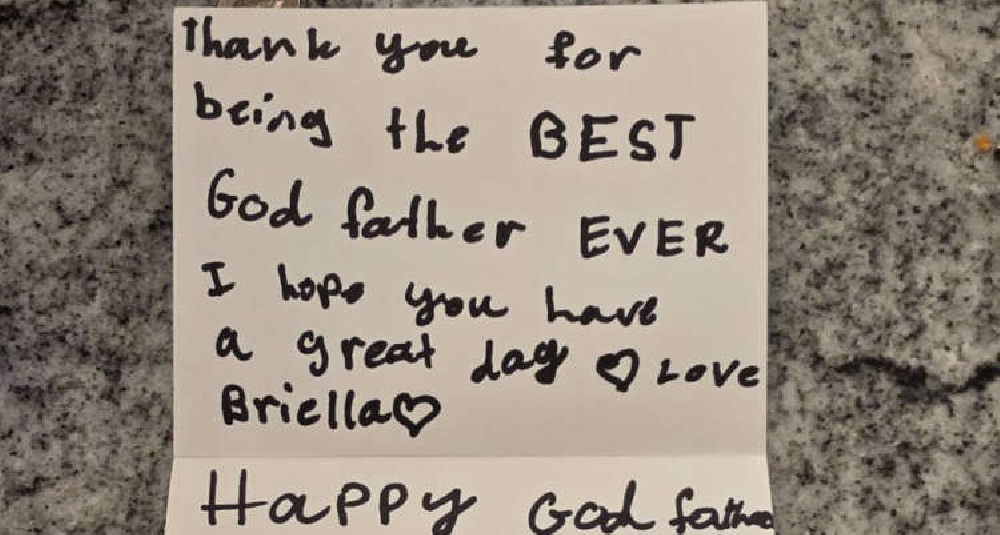 Thank you for
being the BEST
God father EVER
I hope you have
a great day ♡ Love
Briella♡
Happy God father